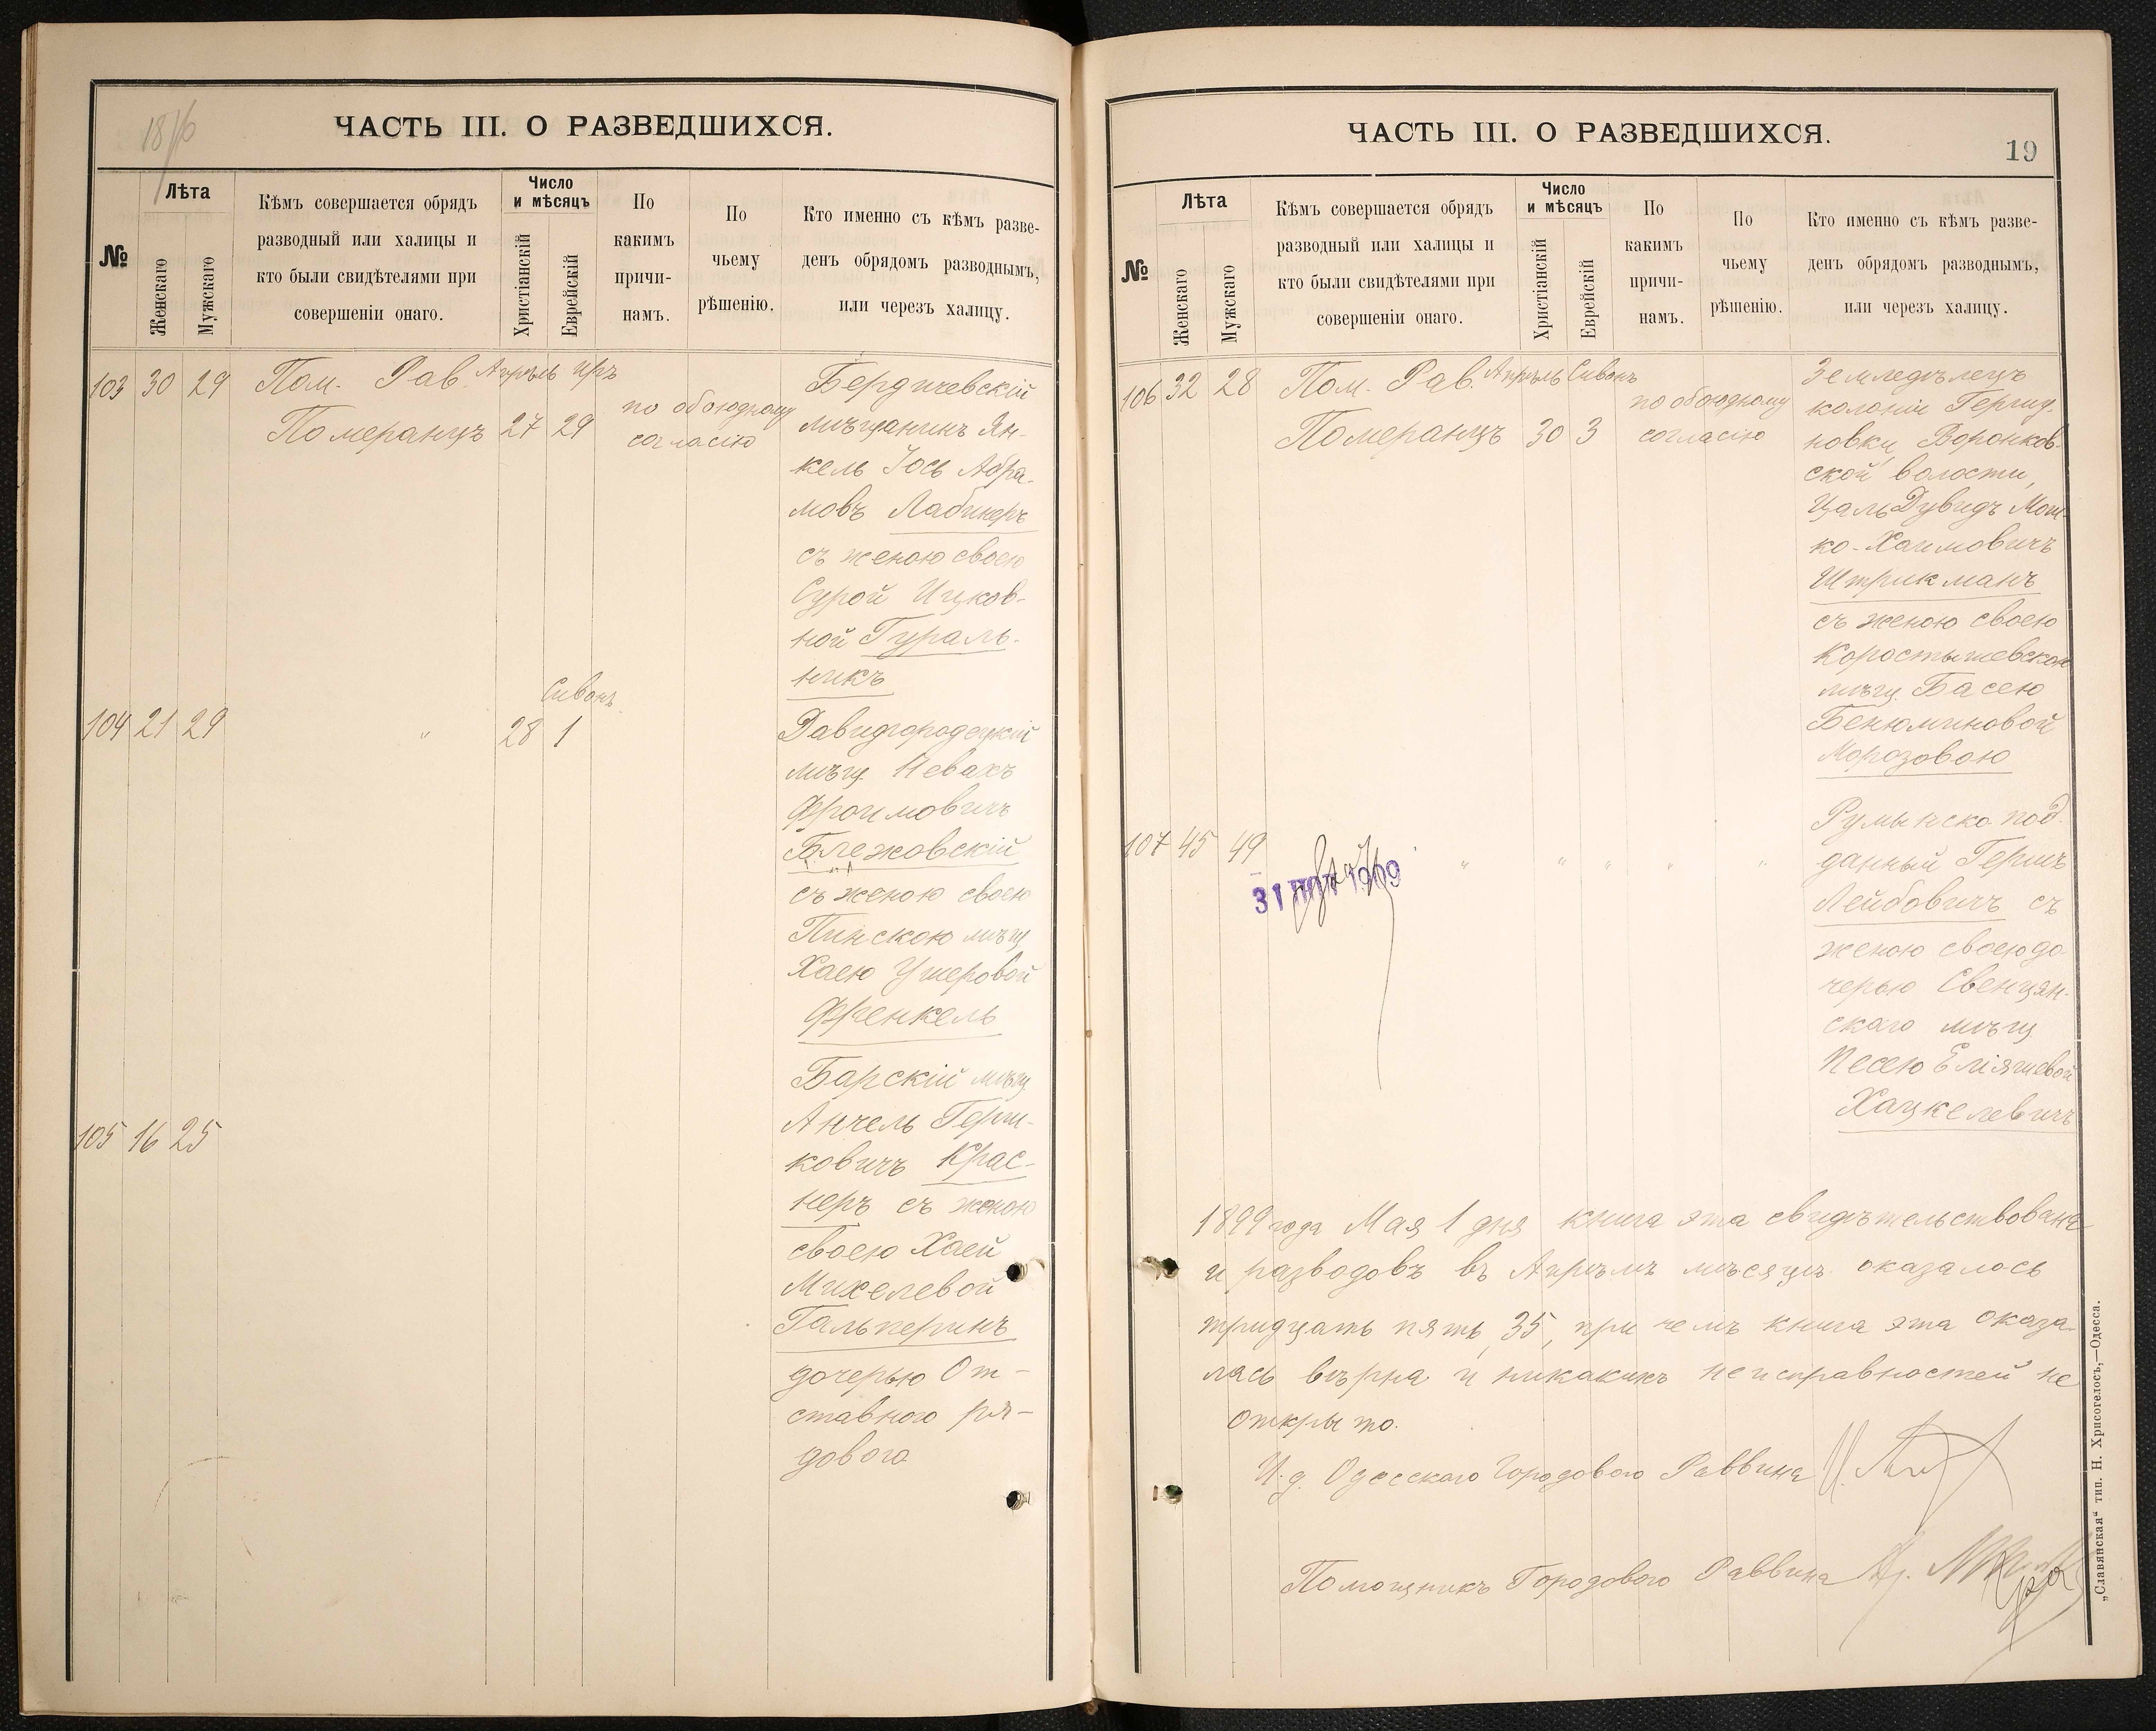 ЧАСТЬ III. О РАЗВЕДШИХСЯ.
№
Лѣта
Женскаго
Мужскаго
Кѣмъ совершается обрядъ
разводный или халицы и
кто были свидѣтелями при
совершеніи онаго.
Число
и мѣсяцъ
Христіанскій
Еврейскій
По
какимъ
причи-
намъ.
По
чьему
рѣшенію.
Кто именно съ кѣмъ разве-
денъ обрядомъ разводнымъ,
или черезъ халицу.
103 30 29 Пом. Рав. Апрѣль Иръ
Померанцъ 27 29
по обоюдному
согласію
Бердичевскій
мѣщанинъ Ян-
кель Іось Абра-
мовъ Лабинеръ
съ женою своею
Сурой Ицков-
ной Гураль-
никъ
Сивонъ
104 21 29 " 28 1
Давидгородецкій
мѣщ. Невахъ
Фроимовичъ
Блежовскій
съ женою своею
Пинскою мѣщ
Хаею Ушеровой
Френкель
105 16 25
Барскій мѣщ
Анчель Герш-
ковичъ Крас-
неръ съ женою
своею Хаей
Михелевой
Гальперинъ
дочерью От-
ставного ря-
дового
ЧАСТЬ III. О РАЗВЕДШИХСЯ.
19
№
Лѣта
Женскаго
Мужскаго
Кѣмъ совершается обрядъ
разводный или халицы и
кто были свидѣтелями при
совершеніи онаго.
Число
и мѣсяцъ
Христіанскій
Еврейскій
По
какимъ
причи-
намъ.
По
чьему
рѣшенію.
Кто именно съ кѣмъ разве-
денъ обрядомъ разводнымъ,
или черезъ халицу.
106 32 28 Пом. Рав. Апрѣль Сивонъ
Померанцъ 30 3
по обоюдному
согласію
Земледѣлецъ
колоніи
новки, Воронков-
ской волости,
Цаль Дувидъ Мош-
ко-Хаимовичъ
Штрикманъ
съ женою своею
Коростышевскою
мѣщ. Басею
Бенюминовой
Морозовою
107 45 49 " " " " "
31 1909
Румынско под-
данный Гершъ
Лейбовичъ съ
женою своею до
черью Свенцян-
скаго мѣщ.
Песею Еліяшевой
Хацкелевичъ
1899 года Мая 1 дня книга эта свидѣтельствована
и разводовъ въ Апрѣлѣ мѣсяцѣ оказалось
тридцать пять, 35, при чемъ книга эта оказа-
лась вѣрна и никакихъ неисправностей не
открыто.
И. д. Одесскаго Городового Раввина
Помощникъ Городового Раввина
„Славянская" тип. Н. Хрисогелосъ,—Одесса.